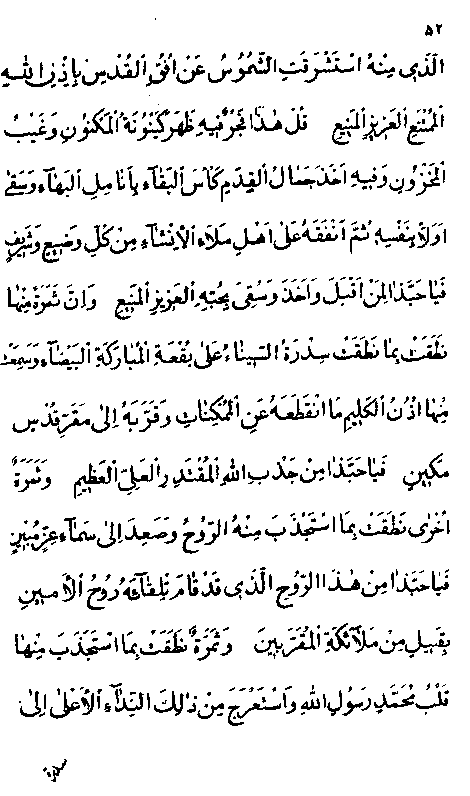 ۵۲
الَّذی مِنهُ اسْتَشْرَقَتِ الشُّمُوسُ عَنْ اُفُقِ الْقُدْسِ بِاِذْنِ اللهِ
الْمُمْتَنِعِ الْعَزیزِ الْمَنیعِ قُلْ هٰذا فَجْرٌ فیهِ ظَهَرَ کَیْنُونَةُ الْمَکْنُونِ وَ غَیْبُ
الْمَخْزُونِ وَ فیهِ اَخَذَ جَمالُ الْقِدَمِ کَاْسَ الْبَقٰاءِ بِاَنامِلِ الْبَهٰاءِ وَ سَقیٰ
اَوَّلاً بِنَفْسِهِ ثُمَّ اَنْفَقَهُ عَلیٰ اَهْلِ مَلَاءِ الْاِنْشٰاءِ مِنْ کُلِّ وَضیعٍ وَ شَریفٍ
فَیا حَبَّذا لِمَنْ اَقْبَلَ وَ اَخَذَ وَ سُقِیَ بِحُبِّهِ الْعَزیزِ الْمَنیعِ وَ اِنَّ ثَمَرَةً مِنْها
نَطَقَتْ بِما نَطَقَتْ سِدْرَةُ السّیناءِ عَلیٰ بُقْعَةِ الْمُبارَکَةِ الْبَیْضٰاءِ وَ سَمِعَتْ
مِنْها اُذُنُ الْکَلیمِ ما انْقَطَعَهُ عَنِ الْمُمْکِناتِ وَ قَرَّبَهُ اِلیٰ مَقَرِّ قُدْسٍ
مَکینٍ فَیا حَبَّذا مِنْ جَذْبِ اللهِ الْمُقْتَدِرِ الْعَلیِّ الْعَظیمِ وَ ثَمَرَةٌ
اُخْریٰ نَطَقَتْ بِما اسْتَجْذَبَ مِنْهُ الرُّوحُ وَ صَعِدَ اِلیٰ سَمٰاءِ عِزٍّ مُبینٍ
فَیا حَبَّذا مِنْ هٰذَا الرُّوحِ الَّذی قَدْ قامَ تِلْقٰائَهُ رُوحُ الْاَمینِ
بِقَبیلٍ مِنْ مَلآئِکَةِ الْمُقَرَّبینَ وَ ثَمَرَةٌ نَطَقَتْ بِما اسْتَجْذَبَ مِنْها
قَلْبُ مُحَمَّدٍ رَسُولِ اللهِ وَ اسْتَعْرَجَ مِنْ ذٰلِکَ النِّدٰاءِ الْاَعْلیٰ اِلیٰ
سدرة